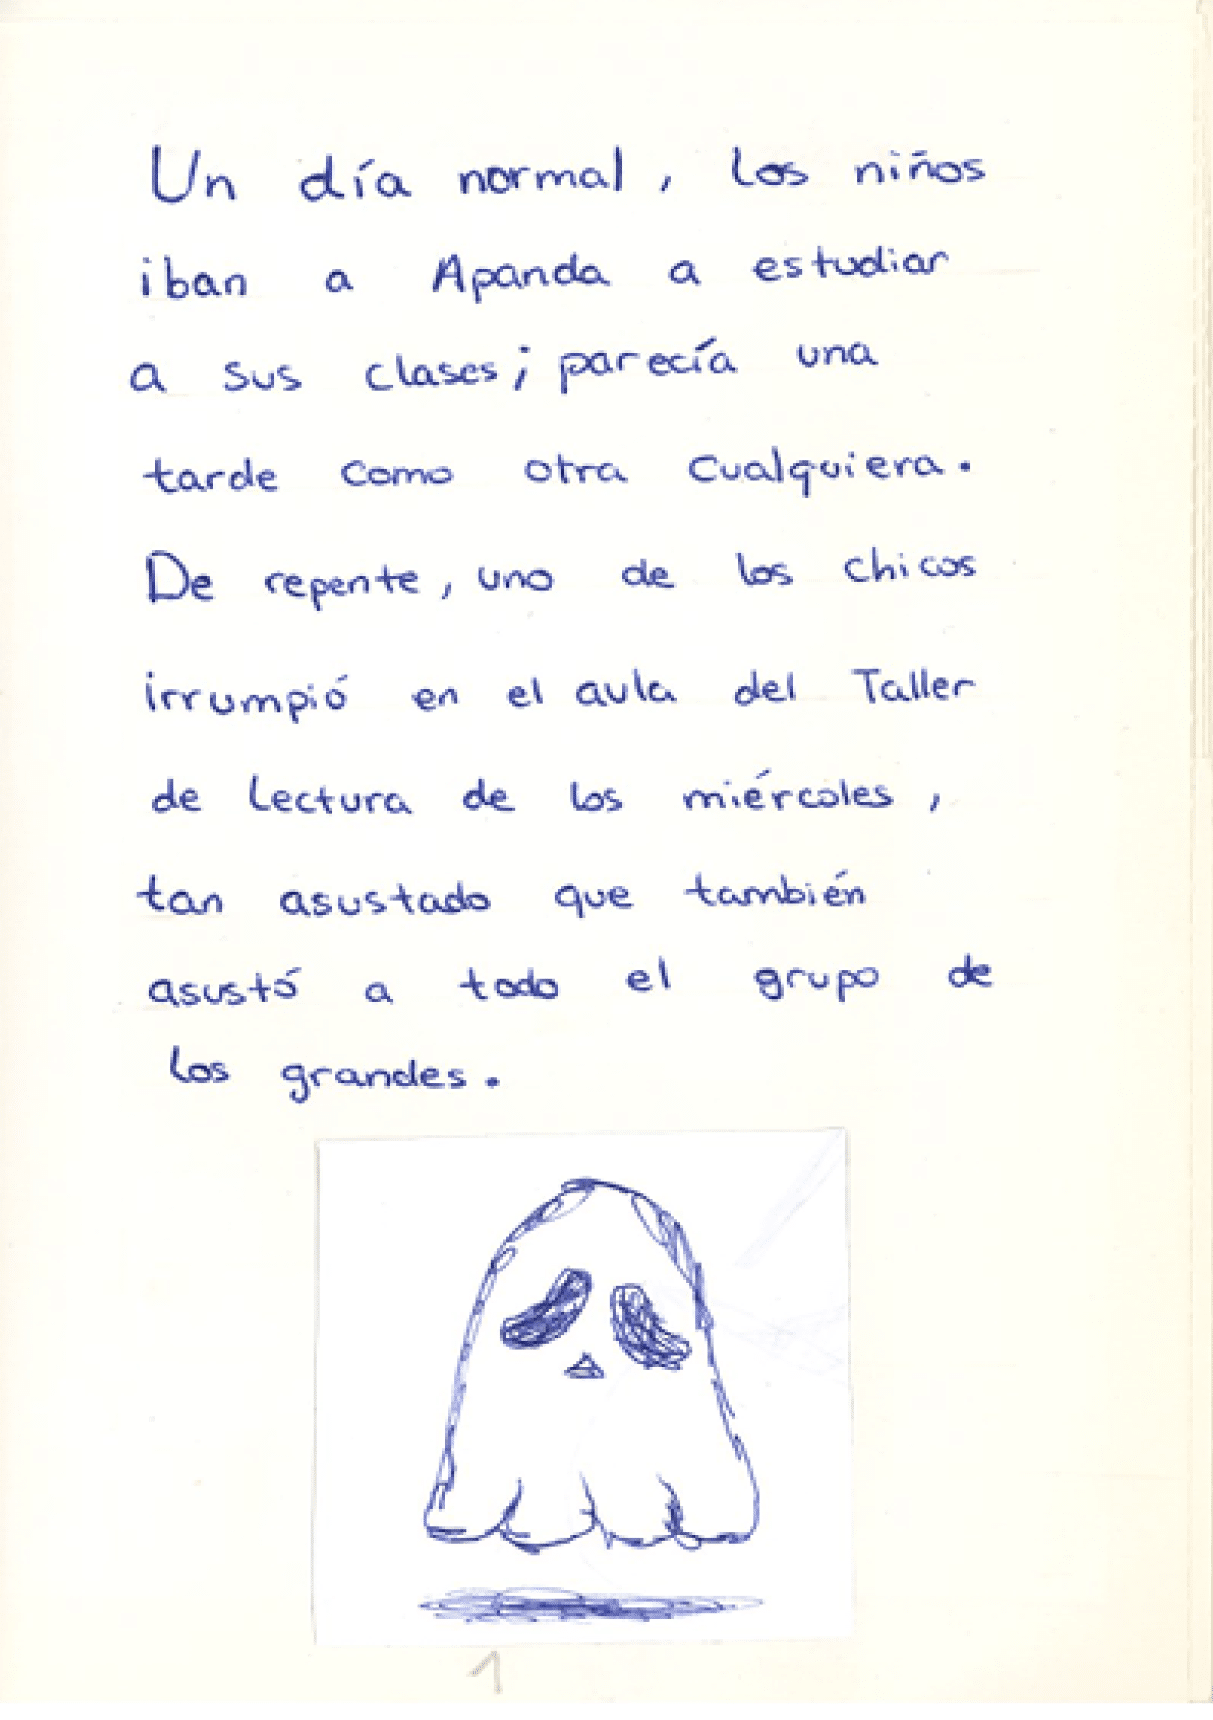 Un día normal, los niños
iban a Apanda a estudiar
a sus clases; parecía una
tarde como otra cualquiera.
De repente, uno de los chicos
irrumpió en el aula del Taller
de Lectura de los miércoles,
tan asustado que también
asustó a todo el grupo de
los grandes.
1